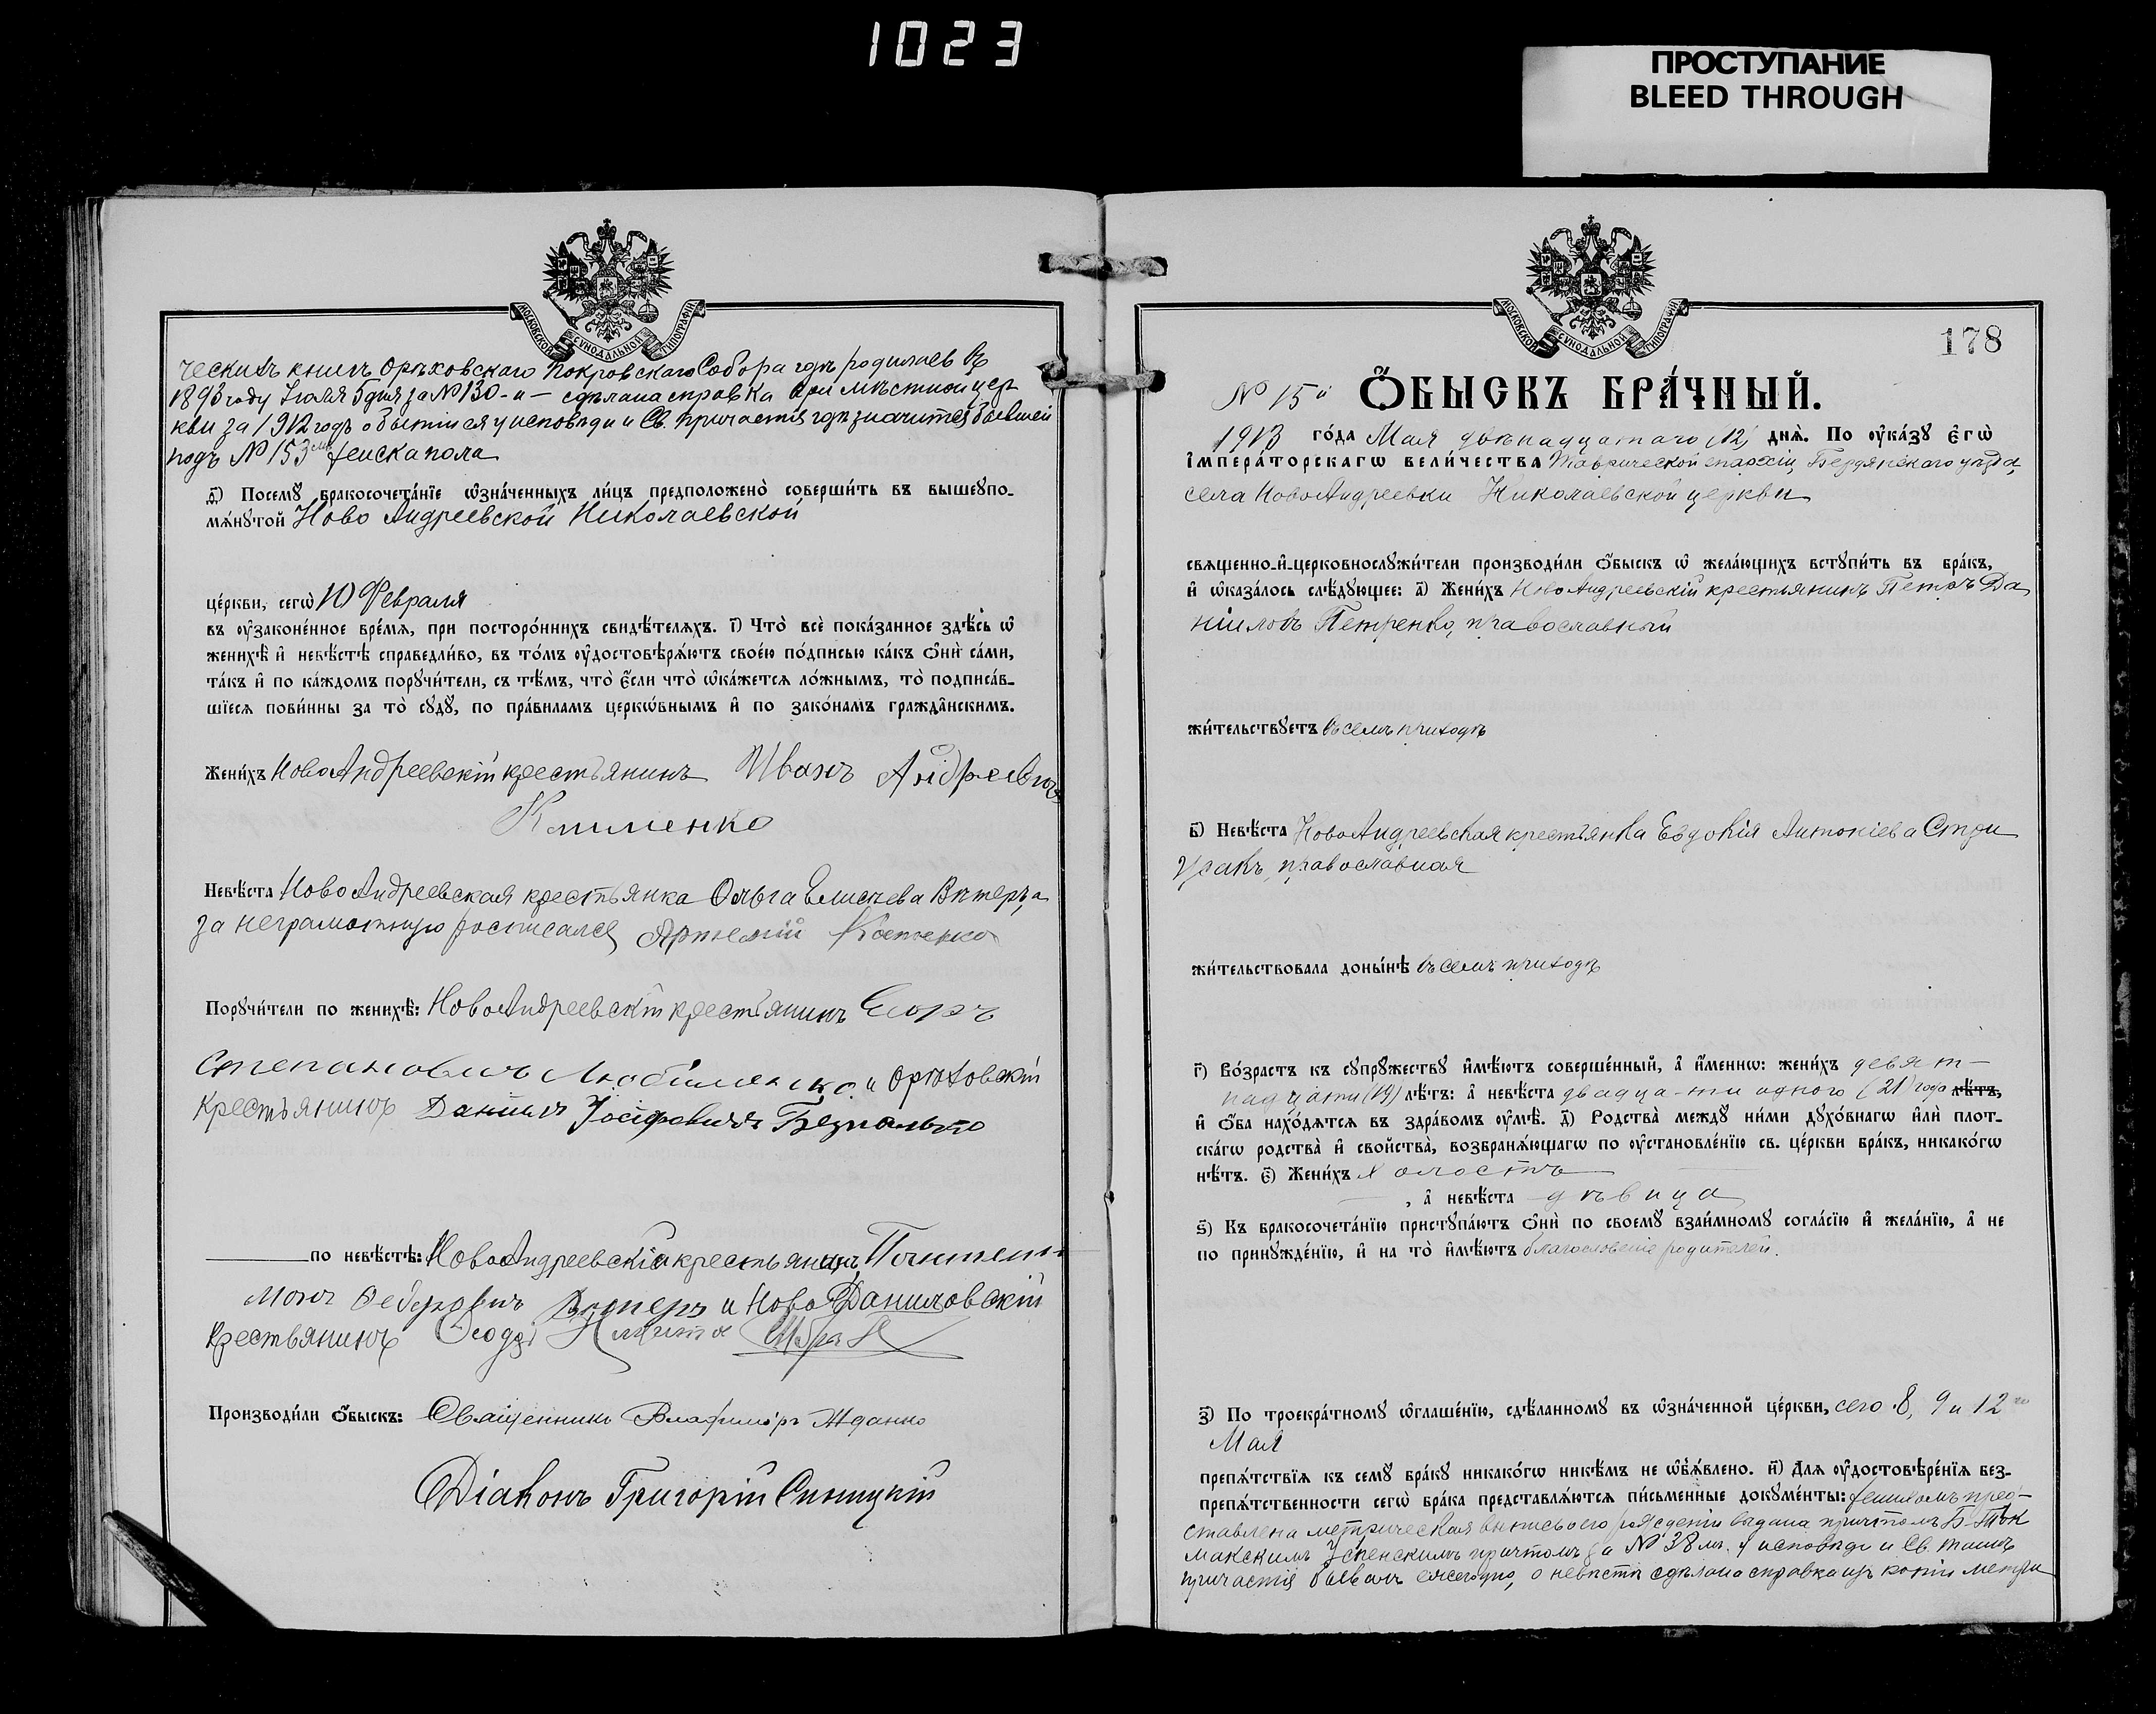 1023
ПРОСТУПАНИЕ
BLEED THROUGH
МОСКОВСКОЙ СѴНОДАЛЬНОЙ ТИПОГРАФІИ
ческихъ книгъ Орѣховскаго Покровскаго Собора гдѣ родилась въ
1893 году Іюля 5 дня за № 130-й — сдѣлана справка при мѣстной цер
кви за 1912 годъ о бытіи ея у исповѣди и Св. Причастія гдѣ значится бывшей
подъ № 153 женска пола
Посемꙋ бракосочета́нїе ѡзна́ченныхъ ли́цъ предположено̀ соверши́ть въ вышеꙋпо-
мѧ́нꙋтой Ново Андреевской Николаевской
це́ркви, сегѡ̀ 10 Февраля
въ ᲂу҆законе́нное вре́мѧ, при посторо́ннихъ свидѣ́телѧхъ. і҃) Что̀ всѐ пока́занное здѣ́сь ѡ҆
женихѣ̀ и҆ невѣ́стѣ справедли́во, въ то́мъ ᲂу҆достовѣрѧ́ютъ свое́ю по́дписью ка́къ ѻ҆нѝ са́ми,
та́къ и҆ по ка́ждомъ порꙋчи́тели, съ тѣ́мъ, что̀ є҆́сли что̀ ѡ҆ка́жетсѧ ло́жнымъ, то̀ подписа́в-
шїесѧ пови́нны за то̀ сꙋдꙋ̀, по пра́виламъ церко́внымъ и҆ по зако́намъ гражда́нскимъ.
Жени́хъ Ново Андреевскій крестьянинъ Иванъ Андреевичъ
Клименко
Невѣ́ста Ново Андреевская крестьянка Ольга Елисеева Вѣтеръ, а
за неграмотную росписался Артемій
Порꙋчи́тели по женихѣ̀: Ново Андреевскій крестьянинъ Егоръ
Степановичъ и Орѣховскій
крестьянинъ Даніилъ Іосифовичъ
по невѣ́стѣ: Ново Андреевскій крестьянинъ Пантелей-
монъ Федоровичъ Вѣтеръ и Ново Даниловскій
крестьянинъ
Производи́ли ѻ҆́быскъ: Священникъ Владиміръ Жданко
Діаконъ Григорій Синицкій
МОСКОВСКОЙ СѴНОДАЛЬНОЙ ТИПОГРАФІИ
178
№ 15й Ѻ҆́БЫСКЪ БРА́ЧНЫЙ.
1913 го́да Мая двѣнадцатаго (12) днѧ̀. По ᲂу҆ка́зꙋ є҆гѡ̀
і҆мпера́торскагѡ вели́чества Таврической епархіи, Бердянскаго уѣзда,
села Ново Андреевки Николаевской церкви
свѧщенно-и҆-церковнослꙋжи́тели производи́ли ѻ҆́быскъ ѡ҆ жела́ющихъ встꙋпи́ть въ бра́къ,
и҆ ѡ҆каза́лось слѣ́дꙋющее: а҃) Жени́хъ Ново Андреевскій крестьянинъ Петръ Да
ніиловъ Петренко, православный
жи́тельствꙋетъ въ семъ приходѣ
в҃) Невѣ́ста Ново Андреевская крестьянка Евдокія Антоніева
православная
жи́тельствовала доны́нѣ въ семъ приходѣ
г҃) Во́зрастъ къ сꙋпрꙋ́жествꙋ и҆мѣ́ютъ соверше́нный, а҆ и҆́менно: жени́хъ девят-
надцати (19) лѣ́тъ: а҆ невѣ́ста двадцати одного (21) года лѣ́тъ,
и҆ ѻ҆́ба нахо́дѧтсѧ въ здра́вомъ ᲂу҆мѣ̀. д҃) Родства̀ междꙋ ни́ми дꙋхо́внагѡ и҆лѝ плот-
ска́гѡ родства̀ и҆ свойства̀, возбранѧ́ющагѡ по ᲂу҆становле́нїю св. це́ркви бра́къ, никако́гѡ
нѣ́тъ. є҃) Жени́хъ холостъ
, а҆ невѣ́ста дѣвица
ѕ҃) Къ бракосочета́нїю пристꙋпа́ютъ ѻ҆нѝ по своемꙋ̀ взаи́мномꙋ согла́сїю и҆ жела́нїю, а҆ не
по принꙋжде́нїю, и҆ на то̀ и҆мѣ́ютъ благословеніе родителей.
з҃) По троекра́тномꙋ ѡ҆глаше́нїю, сдѣ́ланномꙋ въ ѡ҆зна́ченной це́ркви, сего 8, 9 и 12го
Мая
препѧ́тствїѧ къ семꙋ̀ бра́кꙋ никако́гѡ никѣ́мъ не ѡ҆б̾ѧ́влено. и҃) Длѧ ᲂу҆достовѣре́нїѧ без-
препѧ́тственности сегѡ̀ бра́ка представлѧ́ютсѧ пи́сьменные докꙋме́нты: женихомъ пред-
ставлена метрическая выпись о его рожденіи выдана причтомъ Б-Ток
макскимъ Успенскимъ причтомъ за № 38 мъ. У исповѣди и Св. таинъ
причастія бывалъ ежегодно, о невѣстѣ сдѣлана справка изъ копіи метри